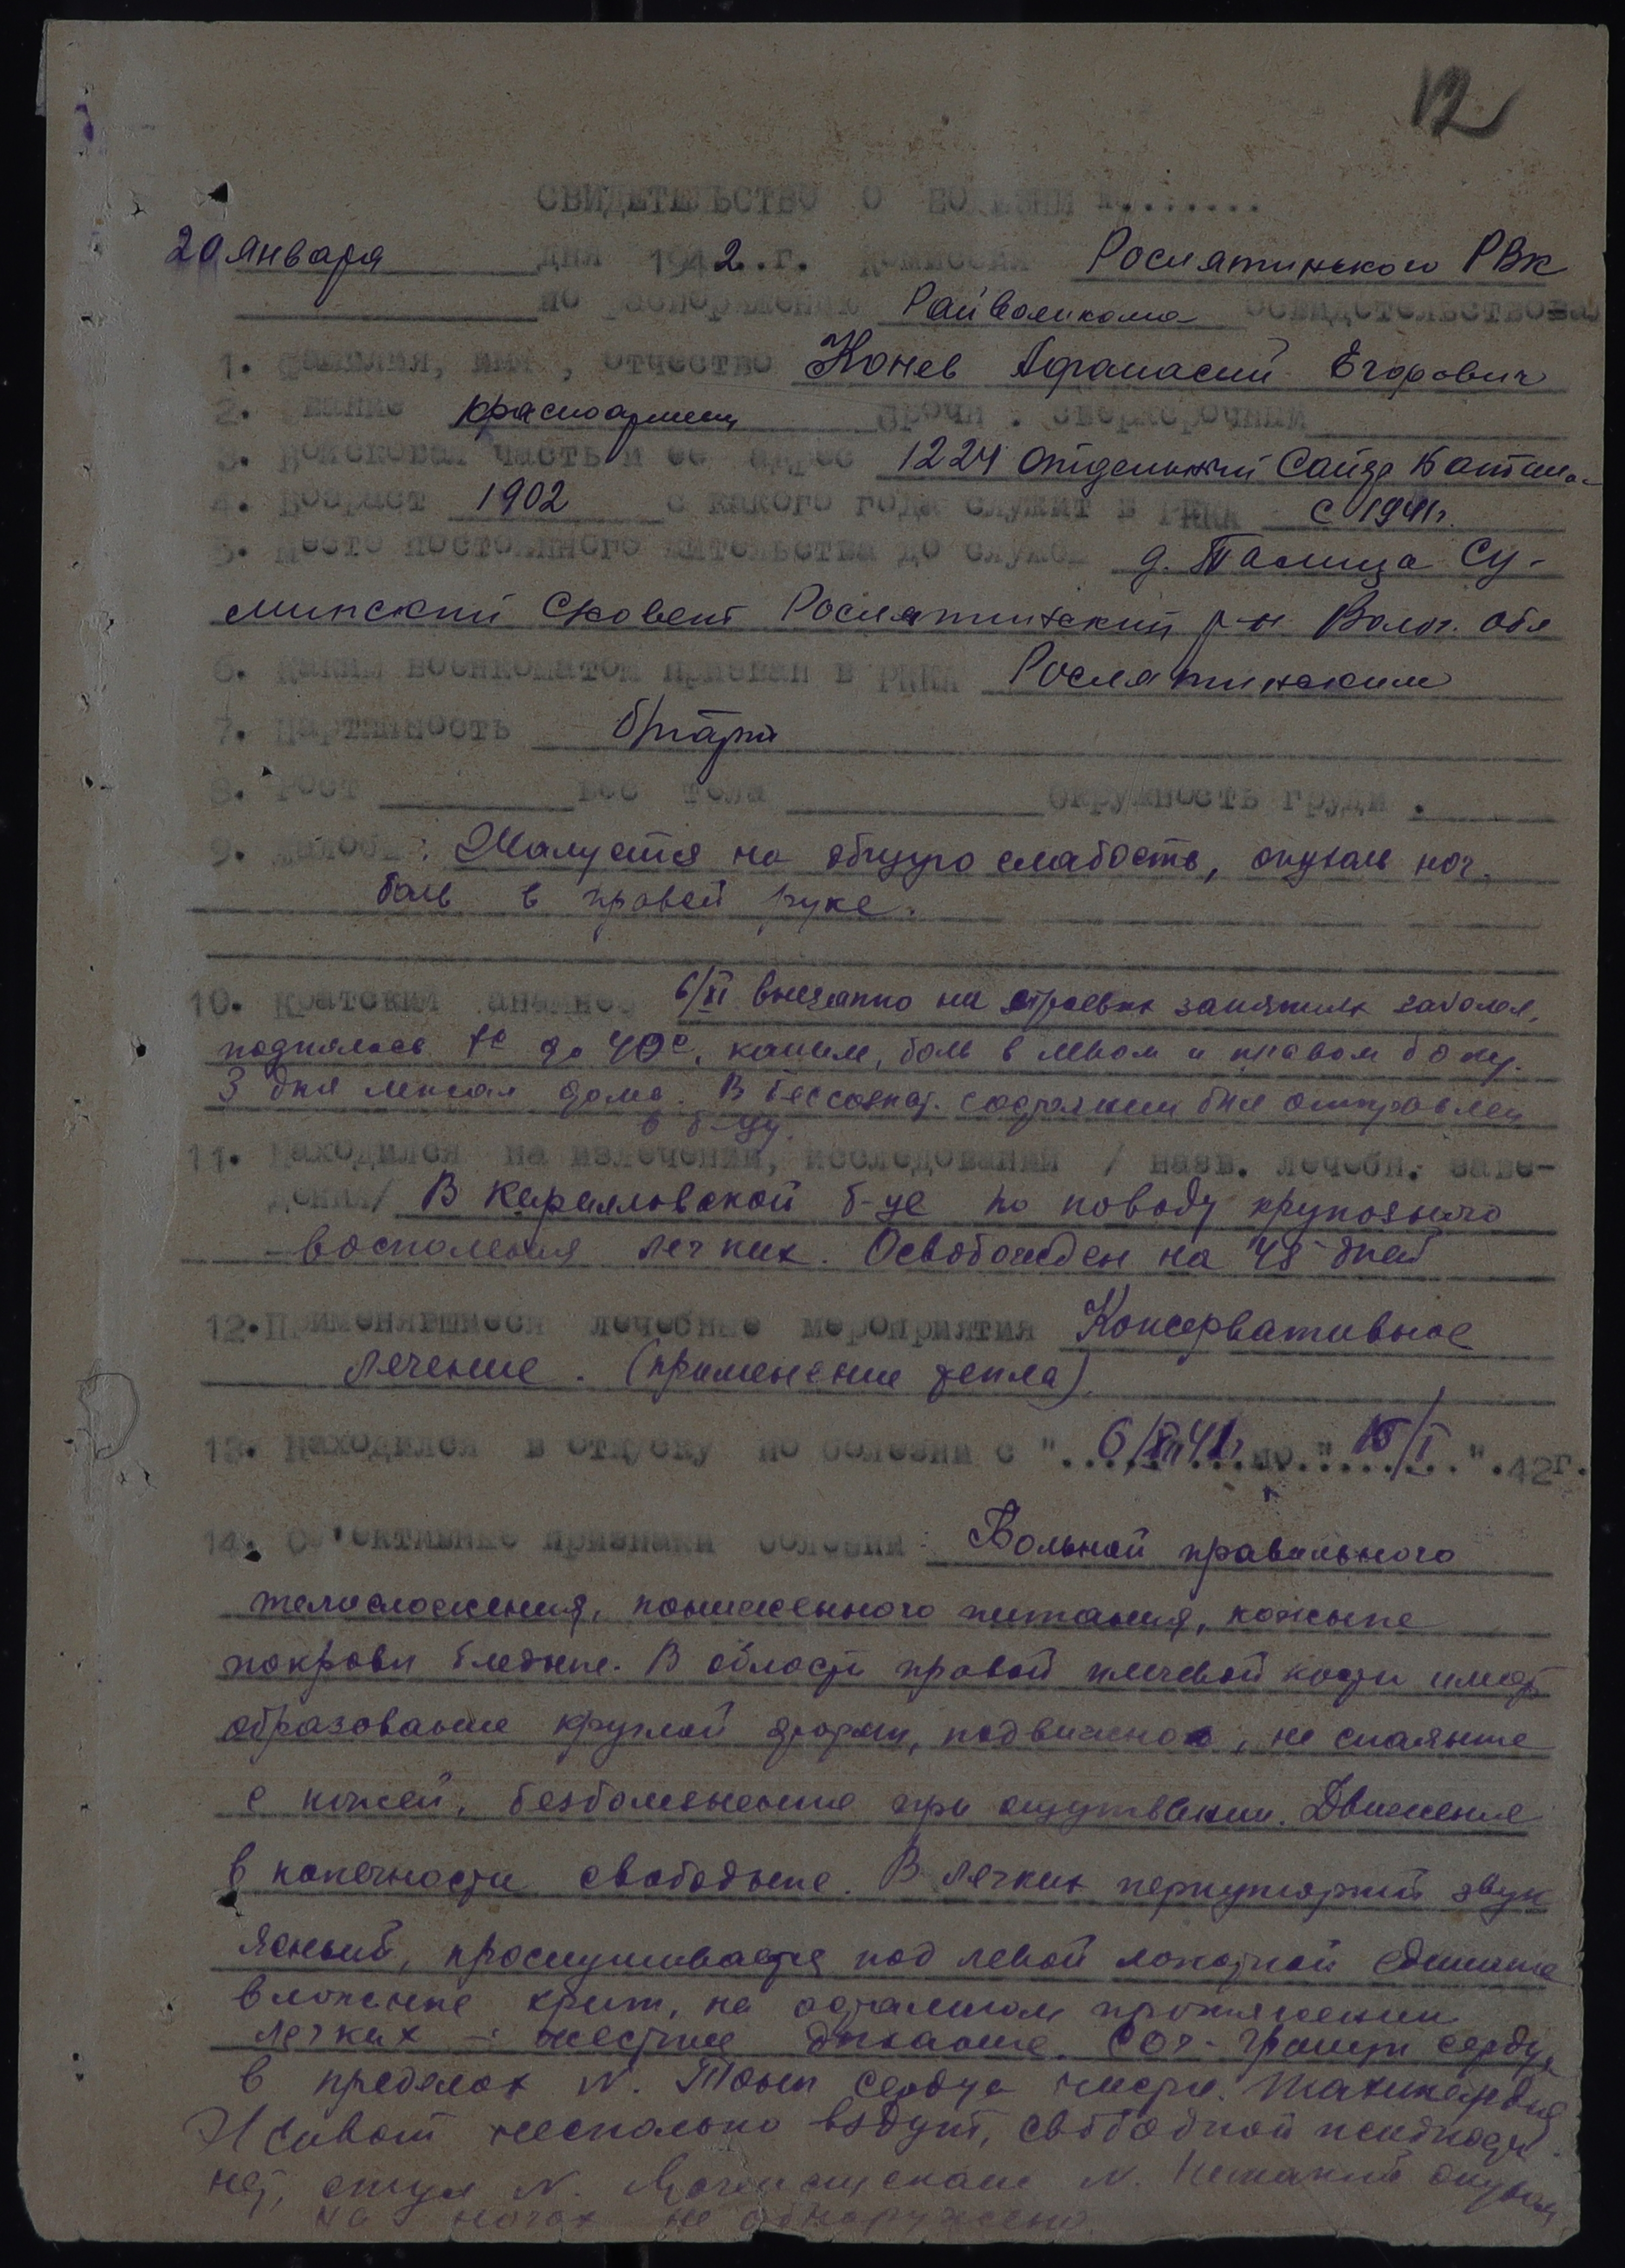 12
СВИДЕТЕЛЬСТВО О БОЛЕЗНИ №.......
20 января дня 1942..г. Комиссия Рослятинского РВК
по распоряжению Райвоенкома освидетельствовал
1. Фамилия, имя, отчество Конев Афанасий Егорович
2. Звание красноармеец Срочн. сверхсрочник
3. Войсковая часть и ее адрес 1224 отдельный Батал.
4. Возраст 1902 с какого года служит в РККА с 1941г.
5. Место постоянного жительства до службы д. Талица Су-
минский С/совет Рослятинский р-н Волог. обл
6. Каким военкоматом призван в РККА Рослятинским
7. Партийность б/парт
8. Рост вес тела окружность груди .
9. Жалобы: Жалуется на общую слабость, опухоль ног.
боль в правой руке.
10. Краткий анамнез 6/XI внезапно на строевых занятиях заболел,
поднялась t° до 40°, кашель, боль в левом и правом боку.
3 дня лежал дома. В бессознат. состоянии был отправлен
в б-цу.
11. Находился на излечении, исследовании / назв. лечебн. заве-
дения/ В б-це по поводу крупозного
воспаления легких. Освобожден на 45 дней
12. Применявшиеся лечебные мероприятия Консервативное
лечение. (применение тепла).
13. Находился в отпуску по болезни с "..6/XII 41г...по."..15/I..".42г.
14. Объективные признаки болезни: Больной правильного
телосложения, пониженного питания, кожные
покровы бледные. В области правой плечевой кости имеет
образование круглой формы, подвижное, не спаянные
с кожей, безболезненные при ощупывании. Движение
в конечности свободные. В легких перкуторный звук
ясный, прослушивается под левой лопаткой единичные
влажные хрип, на остальном протяжении
легких – жесткие дыхание. Сог- границы сердца
в пределах N. Тоны сердца чисты. Тахикардия
Живот несколько вздут, свободной жидкости
нет, стул N. N. опухоли
на ногах не обнаружено.